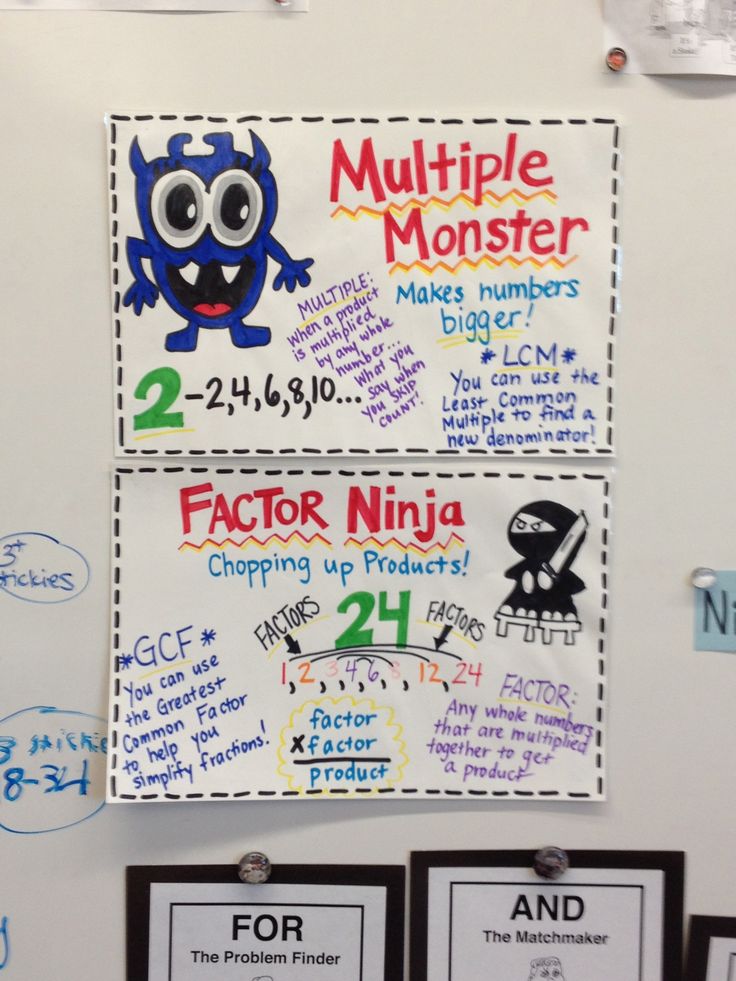 It's
Multiple
Monster
Makes numbers
bigger!
MULTIPLE:
When a product
is multiplied
by any whole
number...
What you
say when
you SKIP
COUNT!
2-2,4,6,8,10...
*LCM*
You can use the
Least Common
Multiple to find a
new denominator!
FACTOR Ninja
Chopping up Products!
24
FACTORS
FACTORS
1,2,3,4,6,8,12,24
*GCF*
You can use
the Greatest
Common Factor
to help you
simplify fractions!
factor
x factor
product
FACTOR:
Any whole numbers
that are multiplied
together to get
a product
3+
stickies
8-34
Ni
FOR
The Problem Finder
AND
The Matchmaker